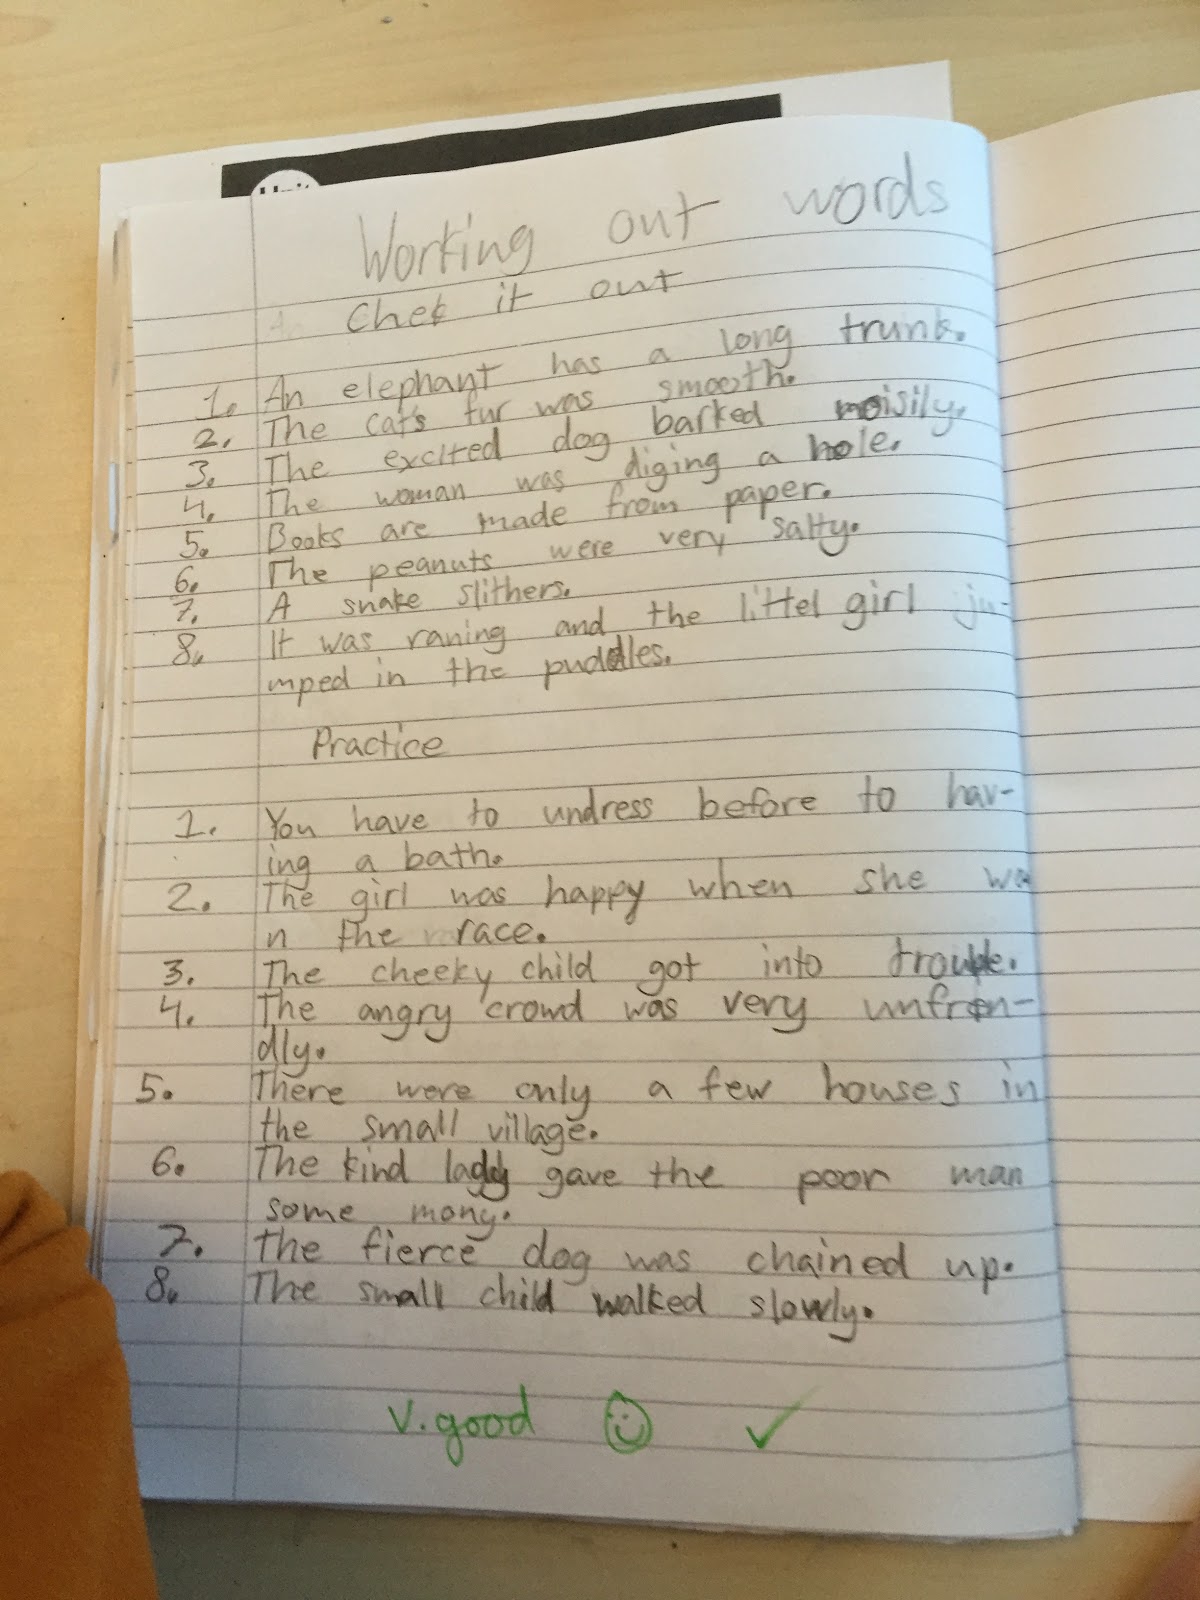 Unit
Working out words
Chek it out
1. An elephant has a long trunk.
2. The cat's fur was smooth.
3. The excited dog barked noisily.
4. The woman was diging a hole.
5. Books are made from paper.
6. The peanuts were very salty.
7. A snake slithers.
8. It was raning and the littel girl ju-
mped in the puddles.
Practice
1. You have to undress before to hav-
ing a bath.
2. The girl was happy when she wo
n the race.
3. The cheeky child got into trouble.
4. The angry crowd was very unfren-
dly.
5. There were only a few houses in
the small village.
6. The kind lady gave the poor man
some mony.
7. the fierce dog was chained up.
8. The small child walked slowly.
v.good ✓